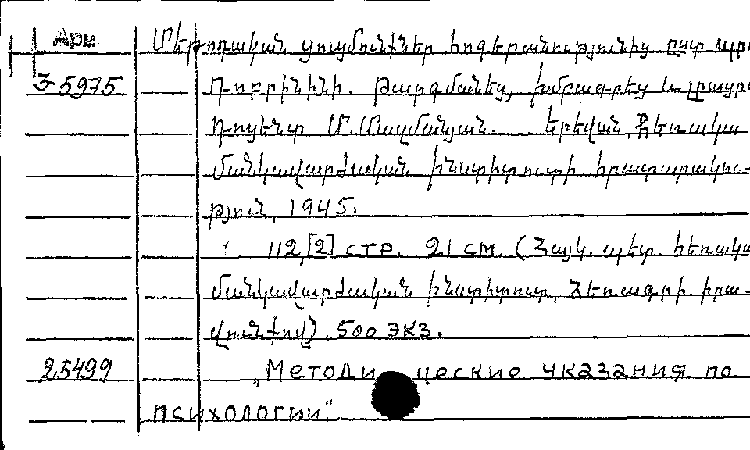 Арм Մեթոդական ցուցմունքներ հոգեբանությունից ըստ պրո
5975 Դոբրինինի. Թարգմանեց, խմբագրեց և լրացրեց
Դոցենտ Մ. Մազմանյան. Երևան, Հեռակա
մանկավարժական ինստիտուտի հրատարակչու-
թյուն, 1945.
112, [2] стр. 21 см. (Հայկ. պետ. հեռակա
մանկավարժական ինստիտուտ, Ձեռագրի իրա-
վունքով) 500 экз.
25499 „Методические указания по
психологии".